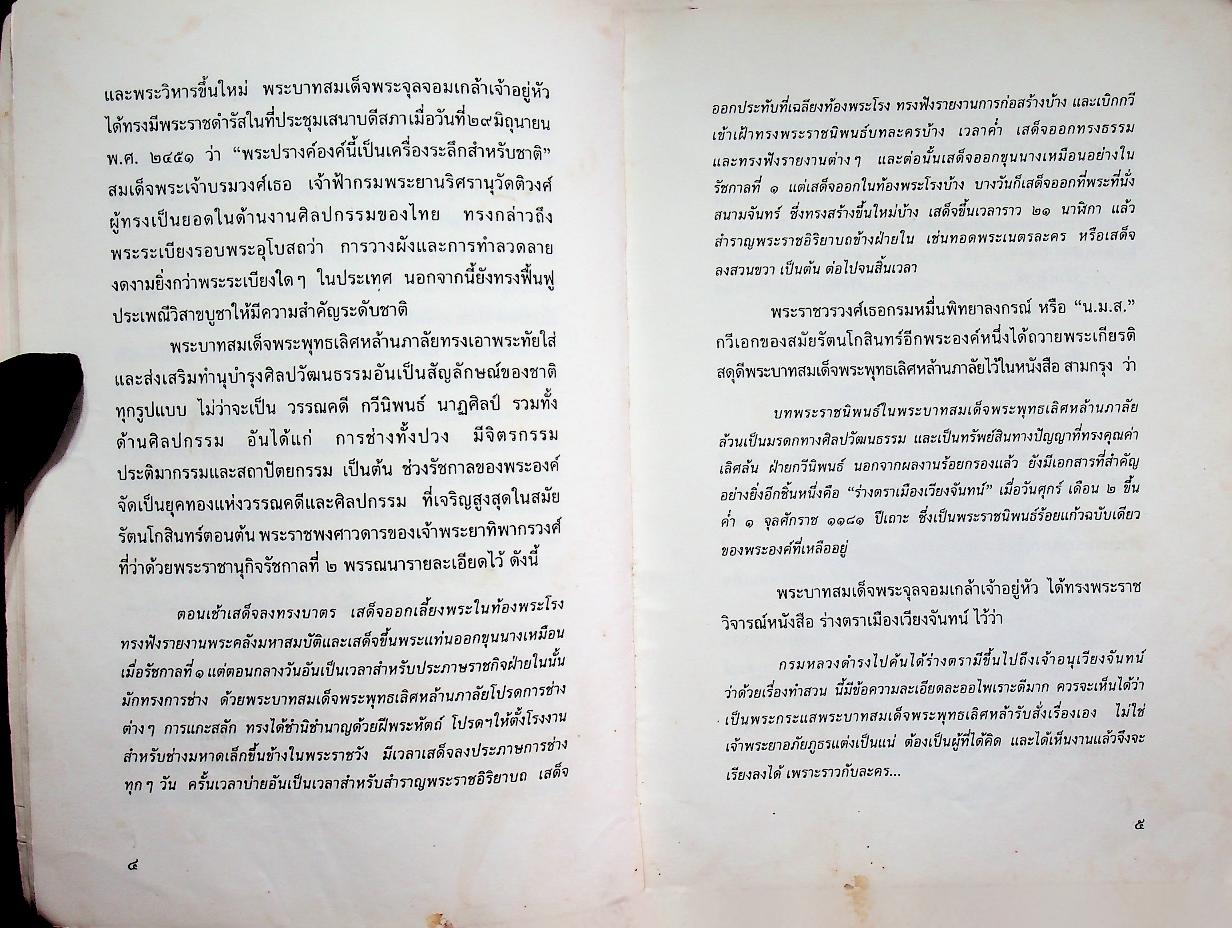 และพระวิหารขึ้นใหม่ พระบาทสมเด็จพระจุลจอมเกล้าเจ้าอยู่หัว
ได้ทรงมีพระราชดำรัสในที่ประชุมเสนาบดีสภาเมื่อวันที่๒๙มิถุนายน
พ.ศ. ๒๔๕๑ ว่า “พระปรางค์องค์นี้เป็นเครื่องระลึกสำหรับชาติ”
สมเด็จพระเจ้าบรมวงศ์เธอ เจ้าฟ้ากรมพระยานริศรานุวัดติวงศ์
ผู้ทรงเป็นยอดในด้านงานศิลปกรรมของไทย ทรงกล่าวถึง
พระระเบียงรอบพระอุโบสถว่า การวางผังและการทำลวดลาย
งดงามยิ่งกว่าพระระเบียงใดๆ ในประเทศ นอกจากนี้ยังทรงฟื้นฟู
ประเพณีวิสาขบูชาให้มีความสำคัญระดับชาติ
พระบาทสมเด็จพระพุทธเลิศหล้านภาลัยทรงเอาพระทัยใส่
และส่งเสริมทำนุบำรุงศิลปวัฒนธรรมอันเป็นสัญลักษณ์ของชาติ
ทุกรูปแบบ ไม่ว่าจะเป็น วรรณคดี กวีนิพนธ์ นาฏศิลป์ รวมทั้ง
ด้านศิลปกรรม อันได้แก่ การช่างทั้งปวง มีจิตรกรรม
ประติมากรรมและสถาปัตยกรรม เป็นต้น ช่วงรัชกาลของพระองค์
จัดเป็นยุคทองแห่งวรรณคดีและศิลปกรรม ที่เจริญสูงสุดในสมัย
รัตนโกสินทร์ตอนต้น พระราชพงศาวดารของเจ้าพระยาทิพากรวงศ์
ที่ว่าด้วยพระราชานุกิจรัชกาลที่ ๒ พรรณนารายละเอียดไว้ ดังนี้
ตอนเช้าเสด็จลงทรงบาตร เสด็จออกเลี้ยงพระในท้องพระโรง
ทรงฟังรายงานพระคลังมหาสมบัติและเสด็จขึ้นพระแท่นออกขุนนางเหมือน
เมื่อรัชกาลที่ ๑ แต่ตอนกลางวันอันเป็นเวลาสำหรับประภาษราชกิจฝ่ายในนั้น
มักทรงการช่าง ด้วยพระบาทสมเด็จพระพุทธเลิศหล้านภาลัยโปรดการช่าง
ต่างๆ การแกะสลัก ทรงได้ชำนิชำนาญด้วยฝีพระหัตถ์ โปรดฯให้ตั้งโรงงาน
สำหรับช่างมหาดเล็กขึ้นข้างในพระราชวัง มีเวลาเสด็จลงประภาษการช่าง
ทุกๆ วัน ครั้นเวลาบ่ายอันเป็นเวลาสำหรับสำราญพระราชอิริยาบถ เสด็จ
๔
ออกประทับที่เฉลียงท้องพระโรง ทรงฟังรายงานการก่อสร้างบ้าง และเบิกกวี
เข้าเฝ้าทรงพระราชนิพนธ์บทละครบ้าง เวลาค่ำ เสด็จออกทรงธรรม
และทรงฟังรายงานต่างๆ และต่อนั้นเสด็จออกขุนนางเหมือนอย่างใน
รัชกาลที่ ๑ แต่เสด็จออกในท้องพระโรงบ้าง บางวันก็เสด็จออกที่พระที่นั่ง
สนามจันทร์ ซึ่งทรงสร้างขึ้นใหม่บ้าง เสด็จขึ้นเวลาราว ๒๑ นาฬิกา แล้ว
สำราญพระราชอิริยาบถข้างฝ่ายใน เช่นทอดพระเนตรละคร หรือเสด็จ
ลงสวนขวา เป็นต้น ต่อไปจนสิ้นเวลา
พระราชวรวงศ์เธอกรมหมื่นพิทยาลงกรณ์ หรือ “น.ม.ส.”
กวีเอกของสมัยรัตนโกสินทร์อีกพระองค์หนึ่งได้ถวายพระเกียรติ
สดุดีพระบาทสมเด็จพระพุทธเลิศหล้านภาลัยไว้ในหนังสือ สามกรุง ว่า
บทพระราชนิพนธ์ในพระบาทสมเด็จพระพุทธเลิศหล้านภาลัย
ล้วนเป็นมรดกทางศิลปวัฒนธรรม และเป็นทรัพย์สินทางปัญญาที่ทรงคุณค่า
เลิศล้น ฝ่ายกวีนิพนธ์ นอกจากผลงานร้อยกรองแล้ว ยังมีเอกสารที่สำคัญ
อย่างยิ่งอีกชิ้นหนึ่งคือ “ร่างตราเมืองเวียงจันทน์” เมื่อวันศุกร์ เดือน ๒ ขึ้น
ค่ำ ๑ จุลศักราช ๑๑๘๑ ปีเถาะ ซึ่งเป็นพระราชนิพนธ์ร้อยแก้วฉบับเดียว
ของพระองค์ที่เหลืออยู่
พระบาทสมเด็จพระจุลจอมเกล้าเจ้าอยู่หัว ได้ทรงพระราช
วิจารณ์หนังสือ ร่างตราเมืองเวียงจันทน์ ไว้ว่า
กรมหลวงดำรงไปค้นได้ร่างตรามีขึ้นไปถึงเจ้าอนุเวียงจันทน์
ว่าด้วยเรื่องทำสวน นี้มีข้อความละเอียดละออไพเราะดีมาก ควรจะเห็นได้ว่า
เป็นพระกระแสพระบาทสมเด็จพระพุทธเลิศหล้ารับสั่งเรื่องเอง ไม่ใช่
เจ้าพระยาอภัยภูธรแต่งเป็นแน่ ต้องเป็นผู้ที่ได้คิด และได้เห็นงานแล้วจึงจะ
เรียงลงได้ เพราะราวกับละคร...
๕